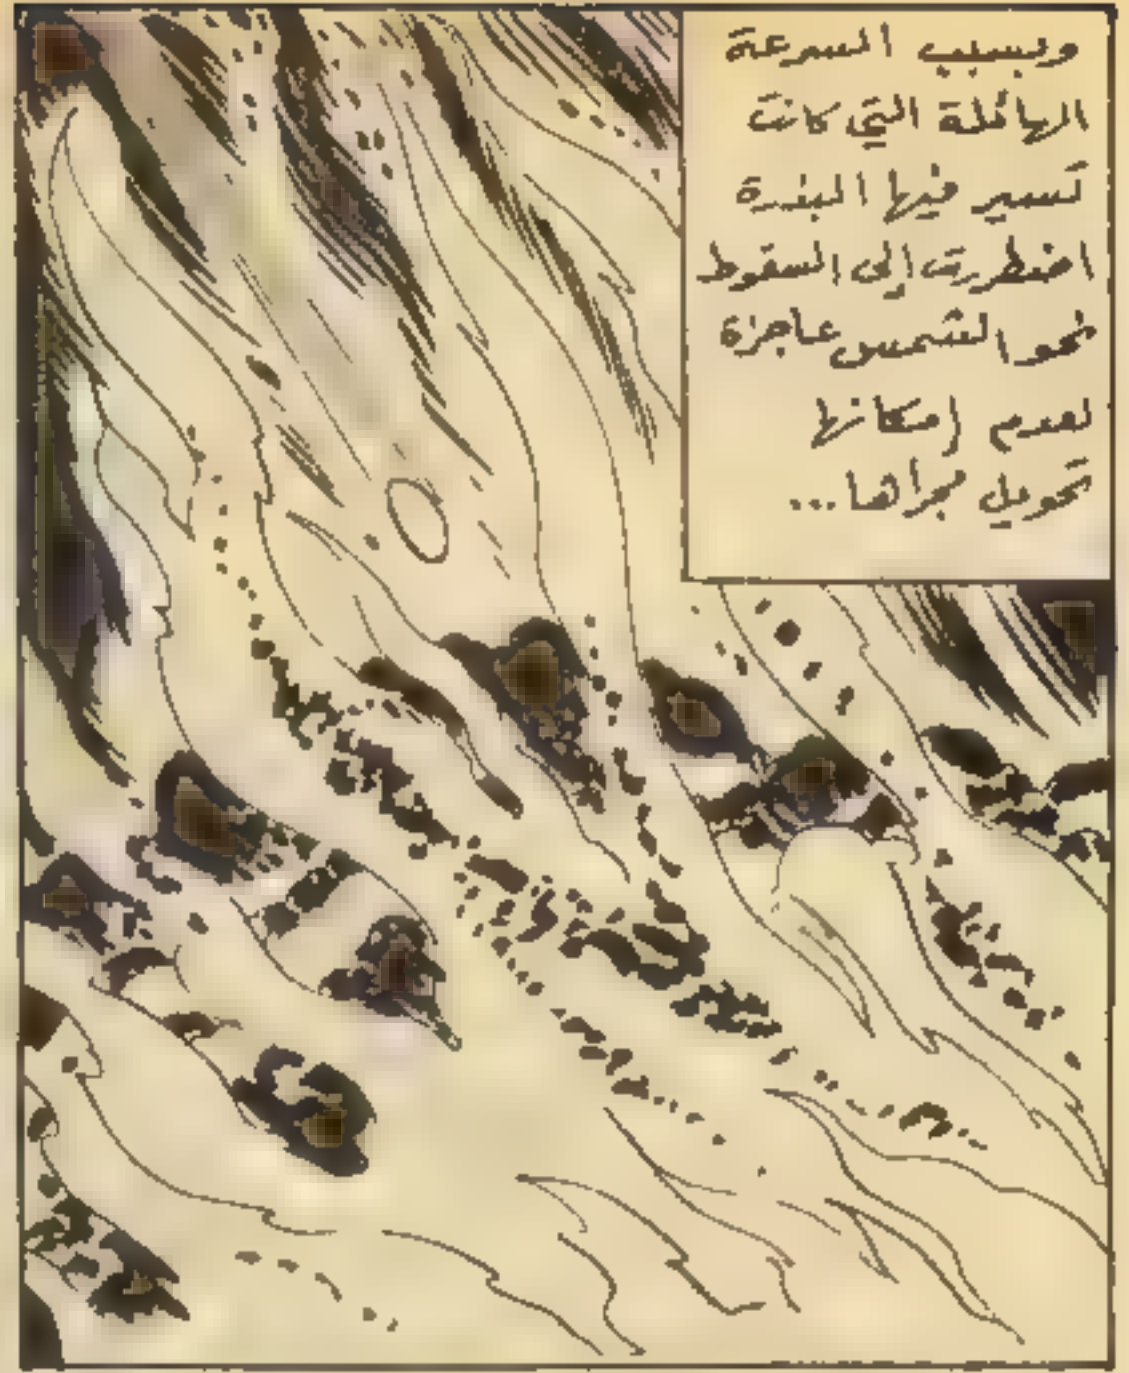 وبسبب السرعة
الهائلة التي كانت
تسير فيها البذرة
اضطررت إلى السقوط
نحو الشمس عاجزة
لعدم إمكانها
تحويل مجراها...